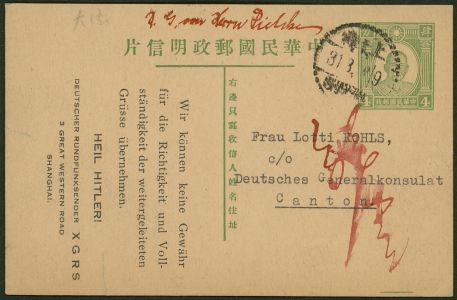 中華民國郵政明信片
右邊只寫收信人姓名住址
4
4
SHANGHAI
Frau Lotti KOHLS,
c/o
Deutsches Generalkonsulat
Canton
Wir können keine Gewähr
für die Richtigkeit und Voll-
ständigkeit der weitergeleiteten
Grüsse übernehmen.
HEIL HITLER!
DEUTSCHER RUNDFUNKSENDER X G R S
3 GREAT WESTERN ROAD
SHANGHAI.